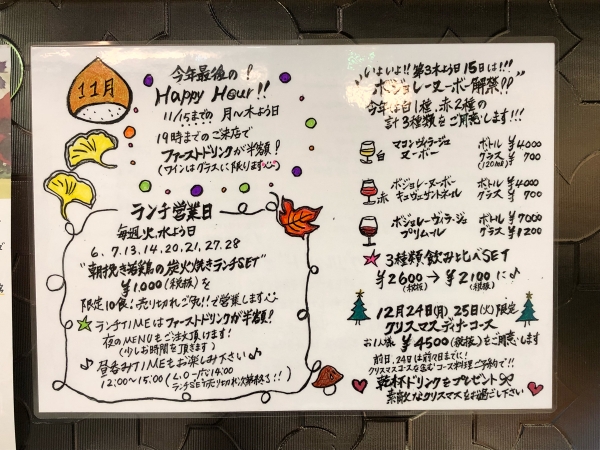 11月
今年最後の!
Happy Hour!!
11/15までの 月〜木よう日
19時までのご来店で
ファーストドリンクが半額!
(ワインはグラスに限ります)
ランチ営業日
毎週火.水よう日
6.7.13.14.20.21.27.28
"朝挽き若鶏の炭火焼きランチSET"
¥1,000(税抜)を
限定10食!売り切れごめん!!で営業します
ランチTIMEはファーストドリンクが半額!
夜のMENUもご注文頂けます!
(少しお時間を頂きます)
♪昼呑みTIMEもお楽しみ下さい♪
12:00〜15:00 (L.O-フード14:00
ランチSET売り切れ次第終了!!)
いよいよ!! 第3木よう日15日は!!!
"ボジョレーヌーボー解禁!?"
今年は白1種、赤2種の
計3種類をご用意します!!!
白 マコンヴィラージュ ヌーボー ボトル ¥4000 グラス ¥700
(120ml)
赤 ボジョレーヌーボー キュヴェサントネール ボトル ¥4000 グラス ¥700
ボジョレーヴィラージュ プリムール ボトル ¥7000 グラス ¥1200
★3種類.飲み比べSET
¥2600(税抜)→¥2100(税抜)に♪
12月24日(月)、25日(火)限定
クリスマスディナーコース
お1人様 ¥4500(税抜)をご用意します
クリスマスコースを含むコース料理ご予約で!!
乾杯ドリンクをプレゼント
素敵なクリスマスをお過ごし下さい